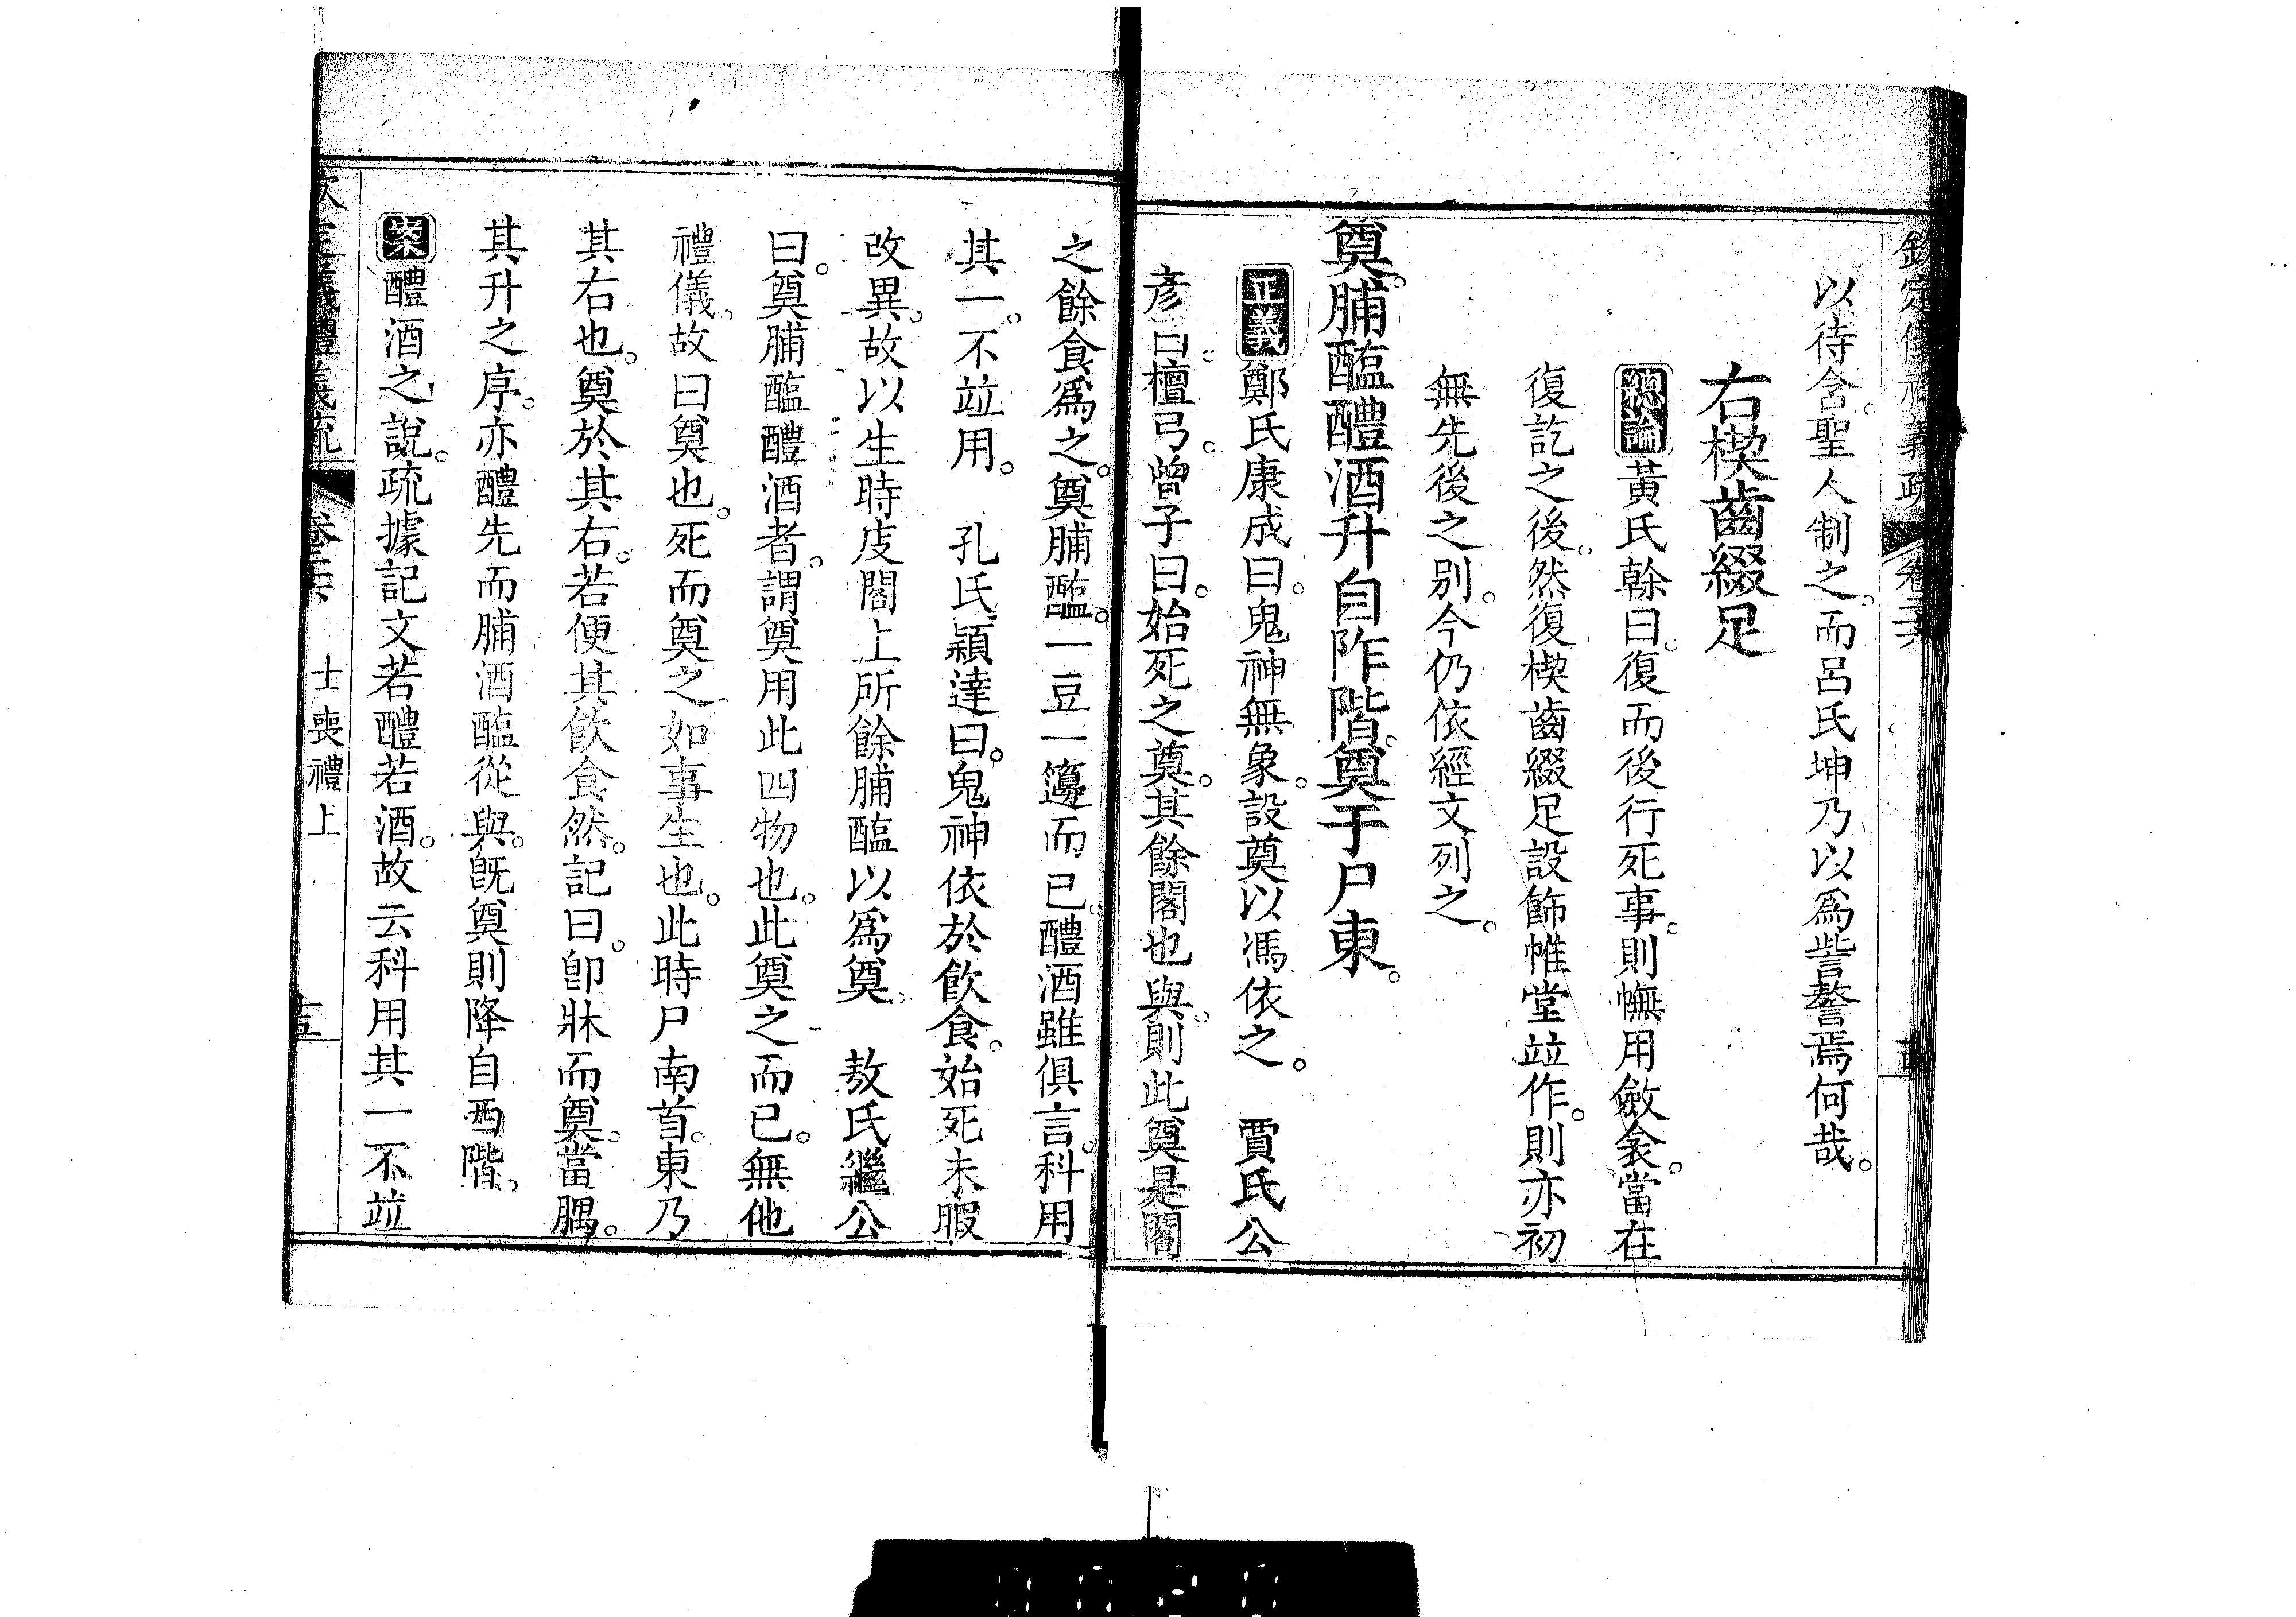 欽定儀禮義疏 卷二六
以待含。聖人制之。而呂氏坤乃以爲訾謷焉何哉。
右楔齒綴足
總論黃氏榦曰。復而後行死事。則幠用斂衾。當在
復訖之後。然復楔齒綴足設飾帷堂竝作。則亦初
無先後之別。今仍依經文列之。
奠。脯醢醴酒升自阼階。奠于尸東。
正義鄭氏康成曰。鬼神無象。設奠以馮依之。 賈氏公
彥曰。檀弓。曾子曰。始死之奠。其餘閣也與。則此奠是閣
之餘食爲之。奠脯醢。一豆一籩而已。醴酒雖俱言。科用
其一。不竝用。 孔氏穎達曰。鬼神依於飲食。始死未暇
改異。故以生時庋閣上所餘脯醢以爲奠。 敖氏繼公
曰。奠脯醢醴酒者。謂奠用此四物也。此奠之而已。無他
禮儀。故曰奠也。死而奠之。如事生也。此時尸南首。東乃
其右也。奠於其右。若便其飲食然。記曰。卽牀而奠。當腢。
其升之序。亦醴先而脯酒醢從與。旣奠則降自西階。
案醴酒之說。疏據記文若醴若酒。故云科用其一不竝
欽定儀禮義疏 卷二六 士喪禮上 十五